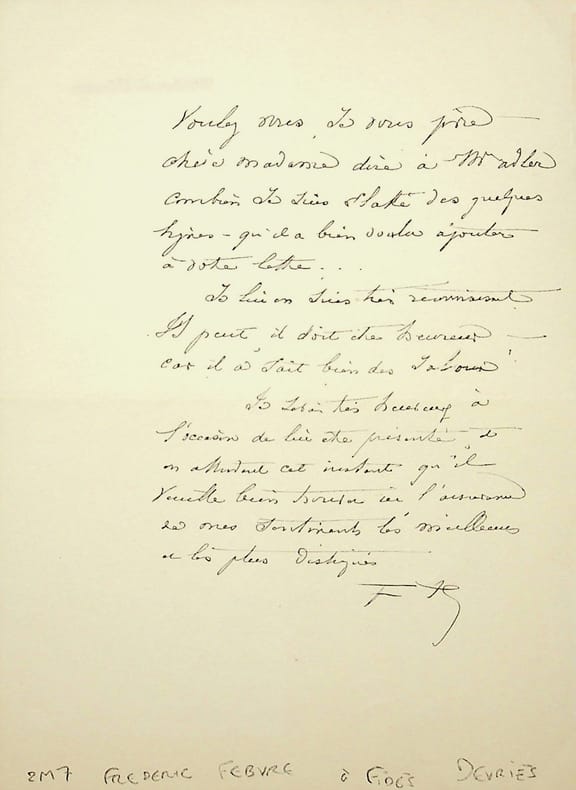 Voulez vous, Je vous prie
chère madame dire à Mr adler
combien Je suis flatté des quelques
lignes - qu'il a bien voulu ajouter
à votre lettre ...
Je lui en suis très reconnaissant
Il peut il doit être heureux
car il a fait bien des Jaloux !
Je serai très heureux à
l'occasion de lui être présenté et
en attendant cet instant qu'il
veuille bien trouver ici l'assurance
de mes sentiments les meilleurs
et les plus distingués
F
2M7 FREDERIC FEBVRE à FIDES DEVRIES